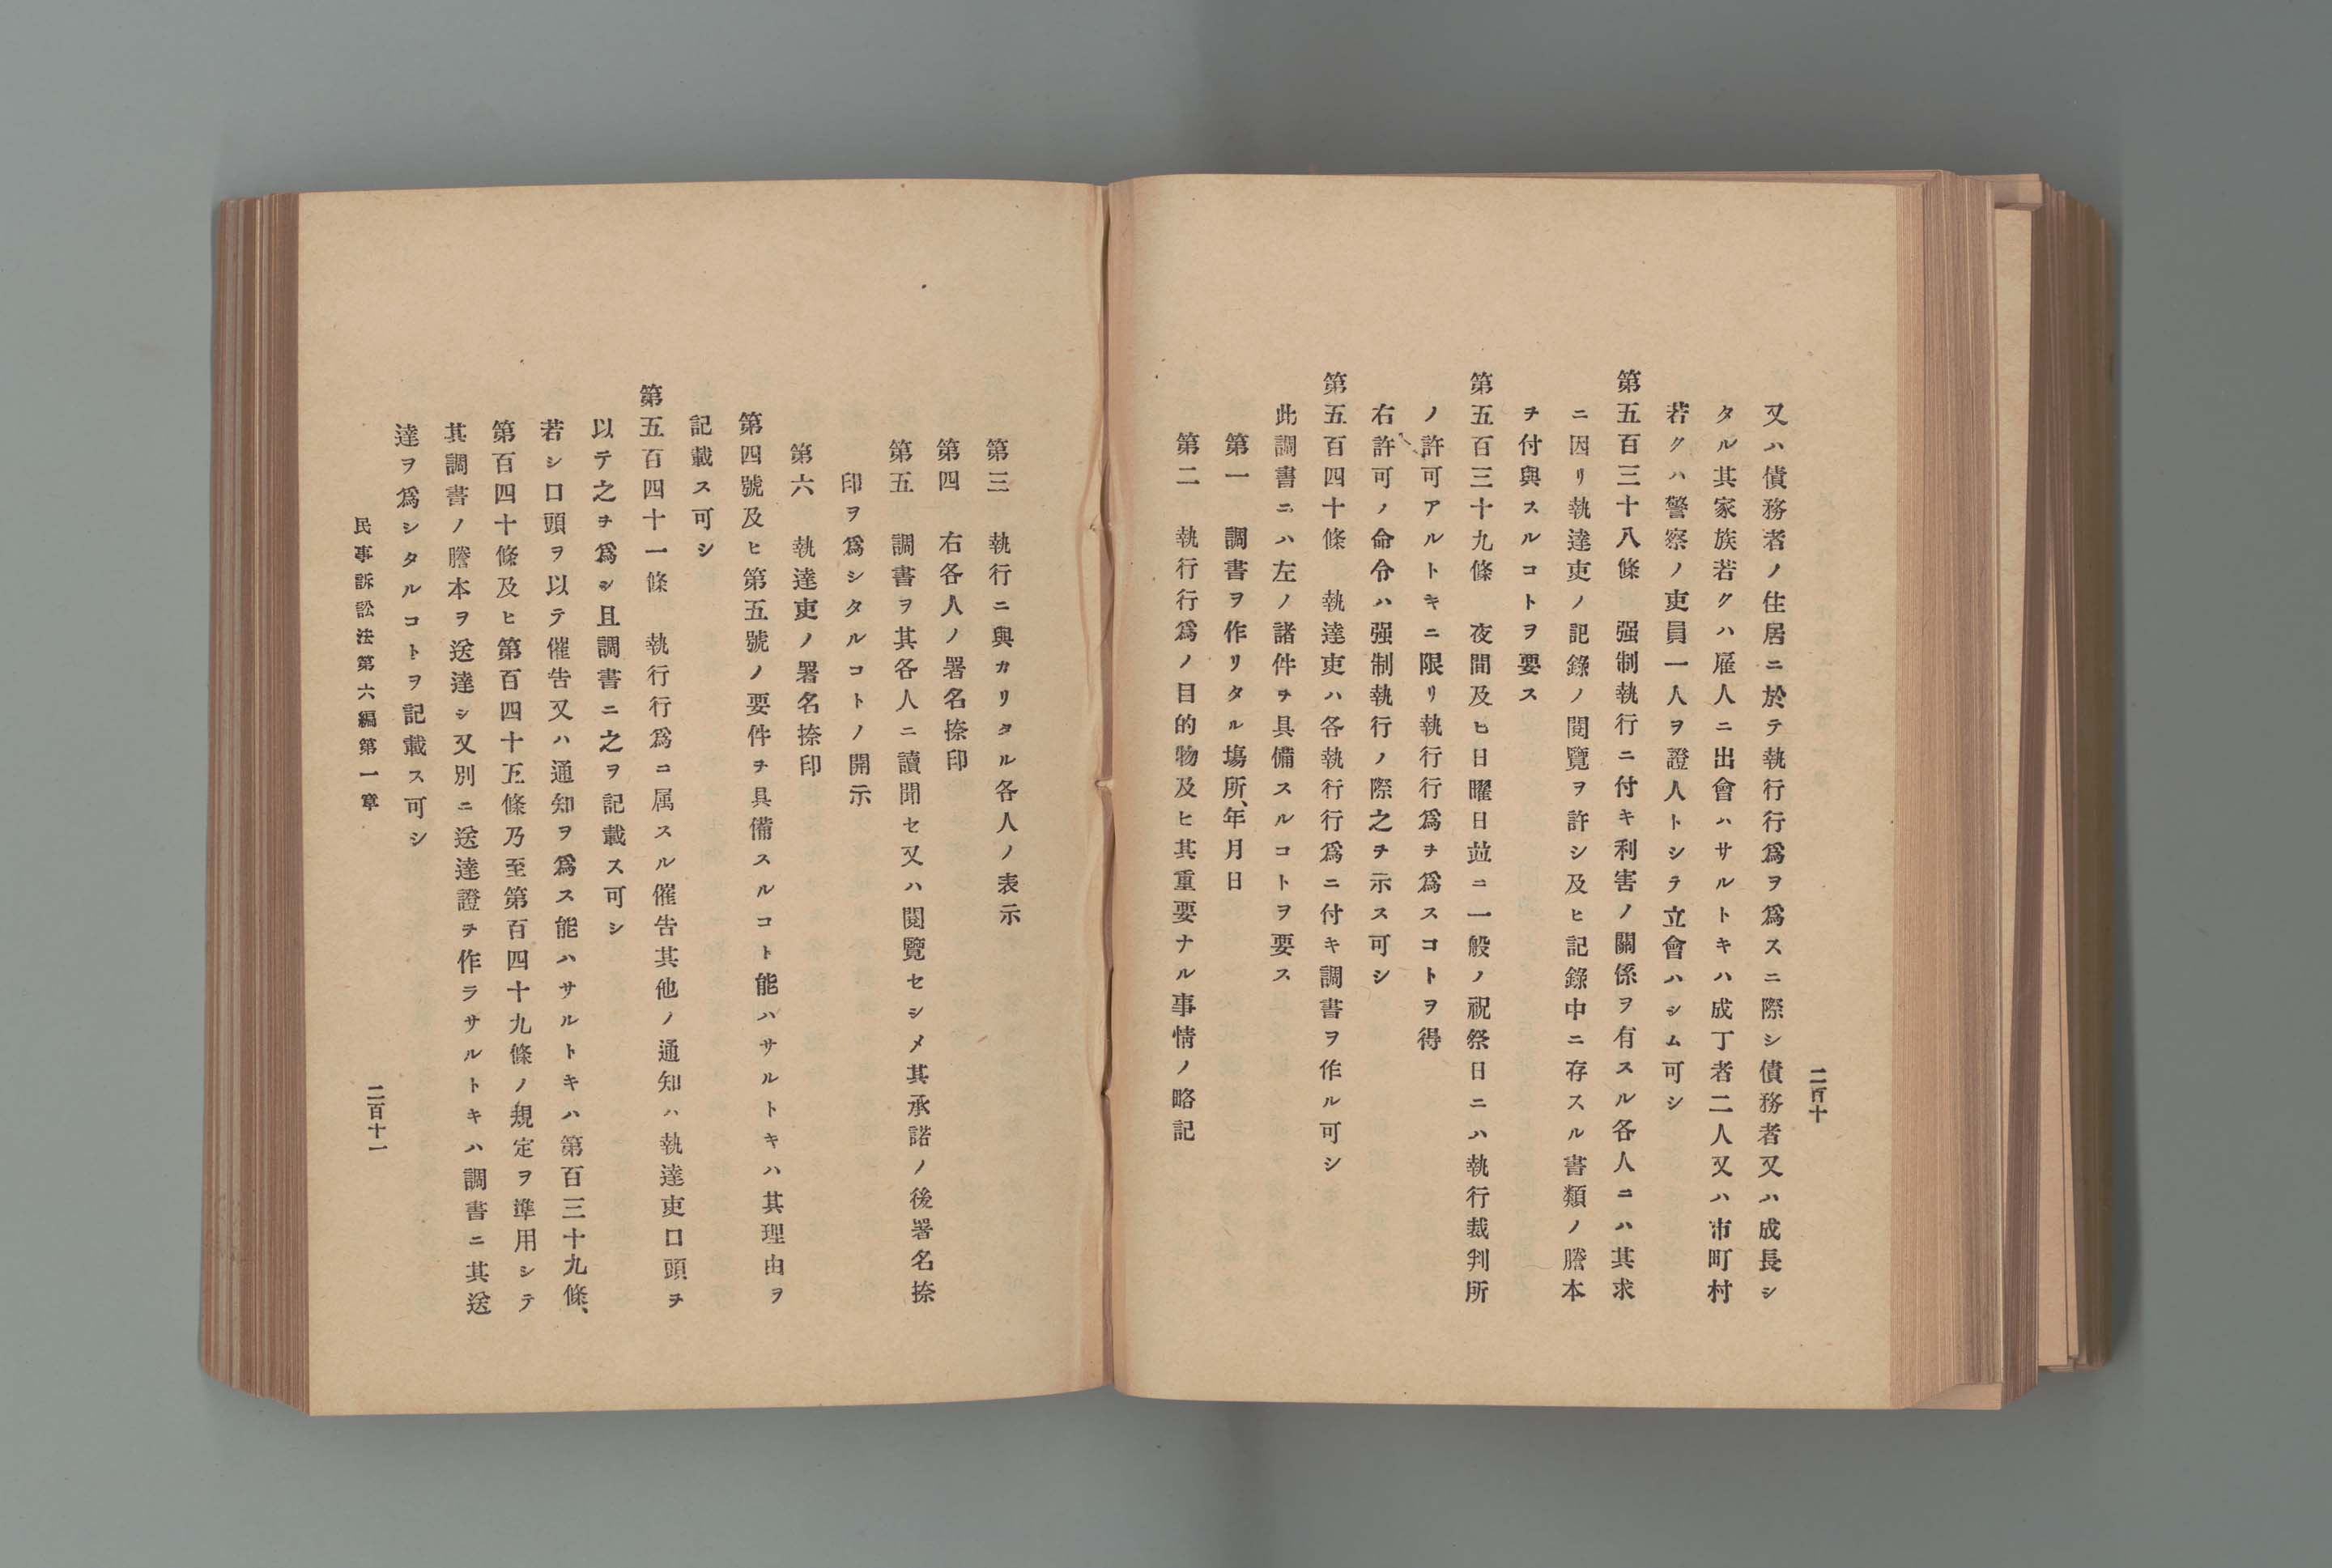 二百十
又ハ債務者ノ住居ニ於テ執行行爲ヲ爲スニ際シ債務者又ハ成長シ
タル其家族若クハ雇人ニ出會ハサルトキハ成丁者二人又ハ市町村
若クハ警察ノ吏員一人ヲ證人トシテ立會ハシム可シ
第五百三十八條　强制執行ニ付キ利害ノ關係ヲ有スル各人ニハ其求
ニ因リ執達吏ノ記錄ノ閱覽ヲ許シ及ヒ記錄中ニ存スル書類ノ謄本
ヲ付與スルコトヲ要ス
第五百三十九條　夜間及ヒ日曜日並ニ一般ノ祝祭日ニハ執行裁判所
ノ許可アルトキニ限リ執行行爲ヲ爲スコトヲ得
右許可ノ命令ハ强制執行ノ際之ヲ示ス可シ
第五百四十條　執達吏ハ各執行行爲ニ付キ調書ヲ作ル可シ
此調書ニハ左ノ諸件ヲ具備スルコトヲ要ス
第一　調書ヲ作リタル塲所、年月日
第二　執行行爲ノ目的物及ヒ其重要ナル事情ノ略記
第三　執行ニ與カリタル各人ノ表示
第四　右各人ノ署名捺印
第五　調書ヲ其各人ニ讀聞セ又ハ閱覽セシメ其承諾ノ後署名捺
印ヲ爲シタルコトノ開示
第六　執達吏ノ署名捺印
第四號及ヒ第五號ノ要件ヲ具備スルコト能ハサルトキハ其理由ヲ
記載ス可シ
第五百四十一條　執行行爲ニ属スル催告其他ノ通知ハ執達吏口頭ヲ
以テ之ヲ爲シ且調書ニ之ヲ記載ス可シ
若シ口頭ヲ以テ催告又ハ通知ヲ爲ス能ハサルトキハ第百三十九條、
第百四十條及ヒ第百四十五條乃至第百四十九條ノ規定ヲ準用シテ
其調書ノ謄本ヲ送達シ又別ニ送達證ヲ作ラサルトキハ調書ニ其送
達ヲ爲シタルコトヲ記載ス可シ
民事訴訟法第六編第一章
二百十一